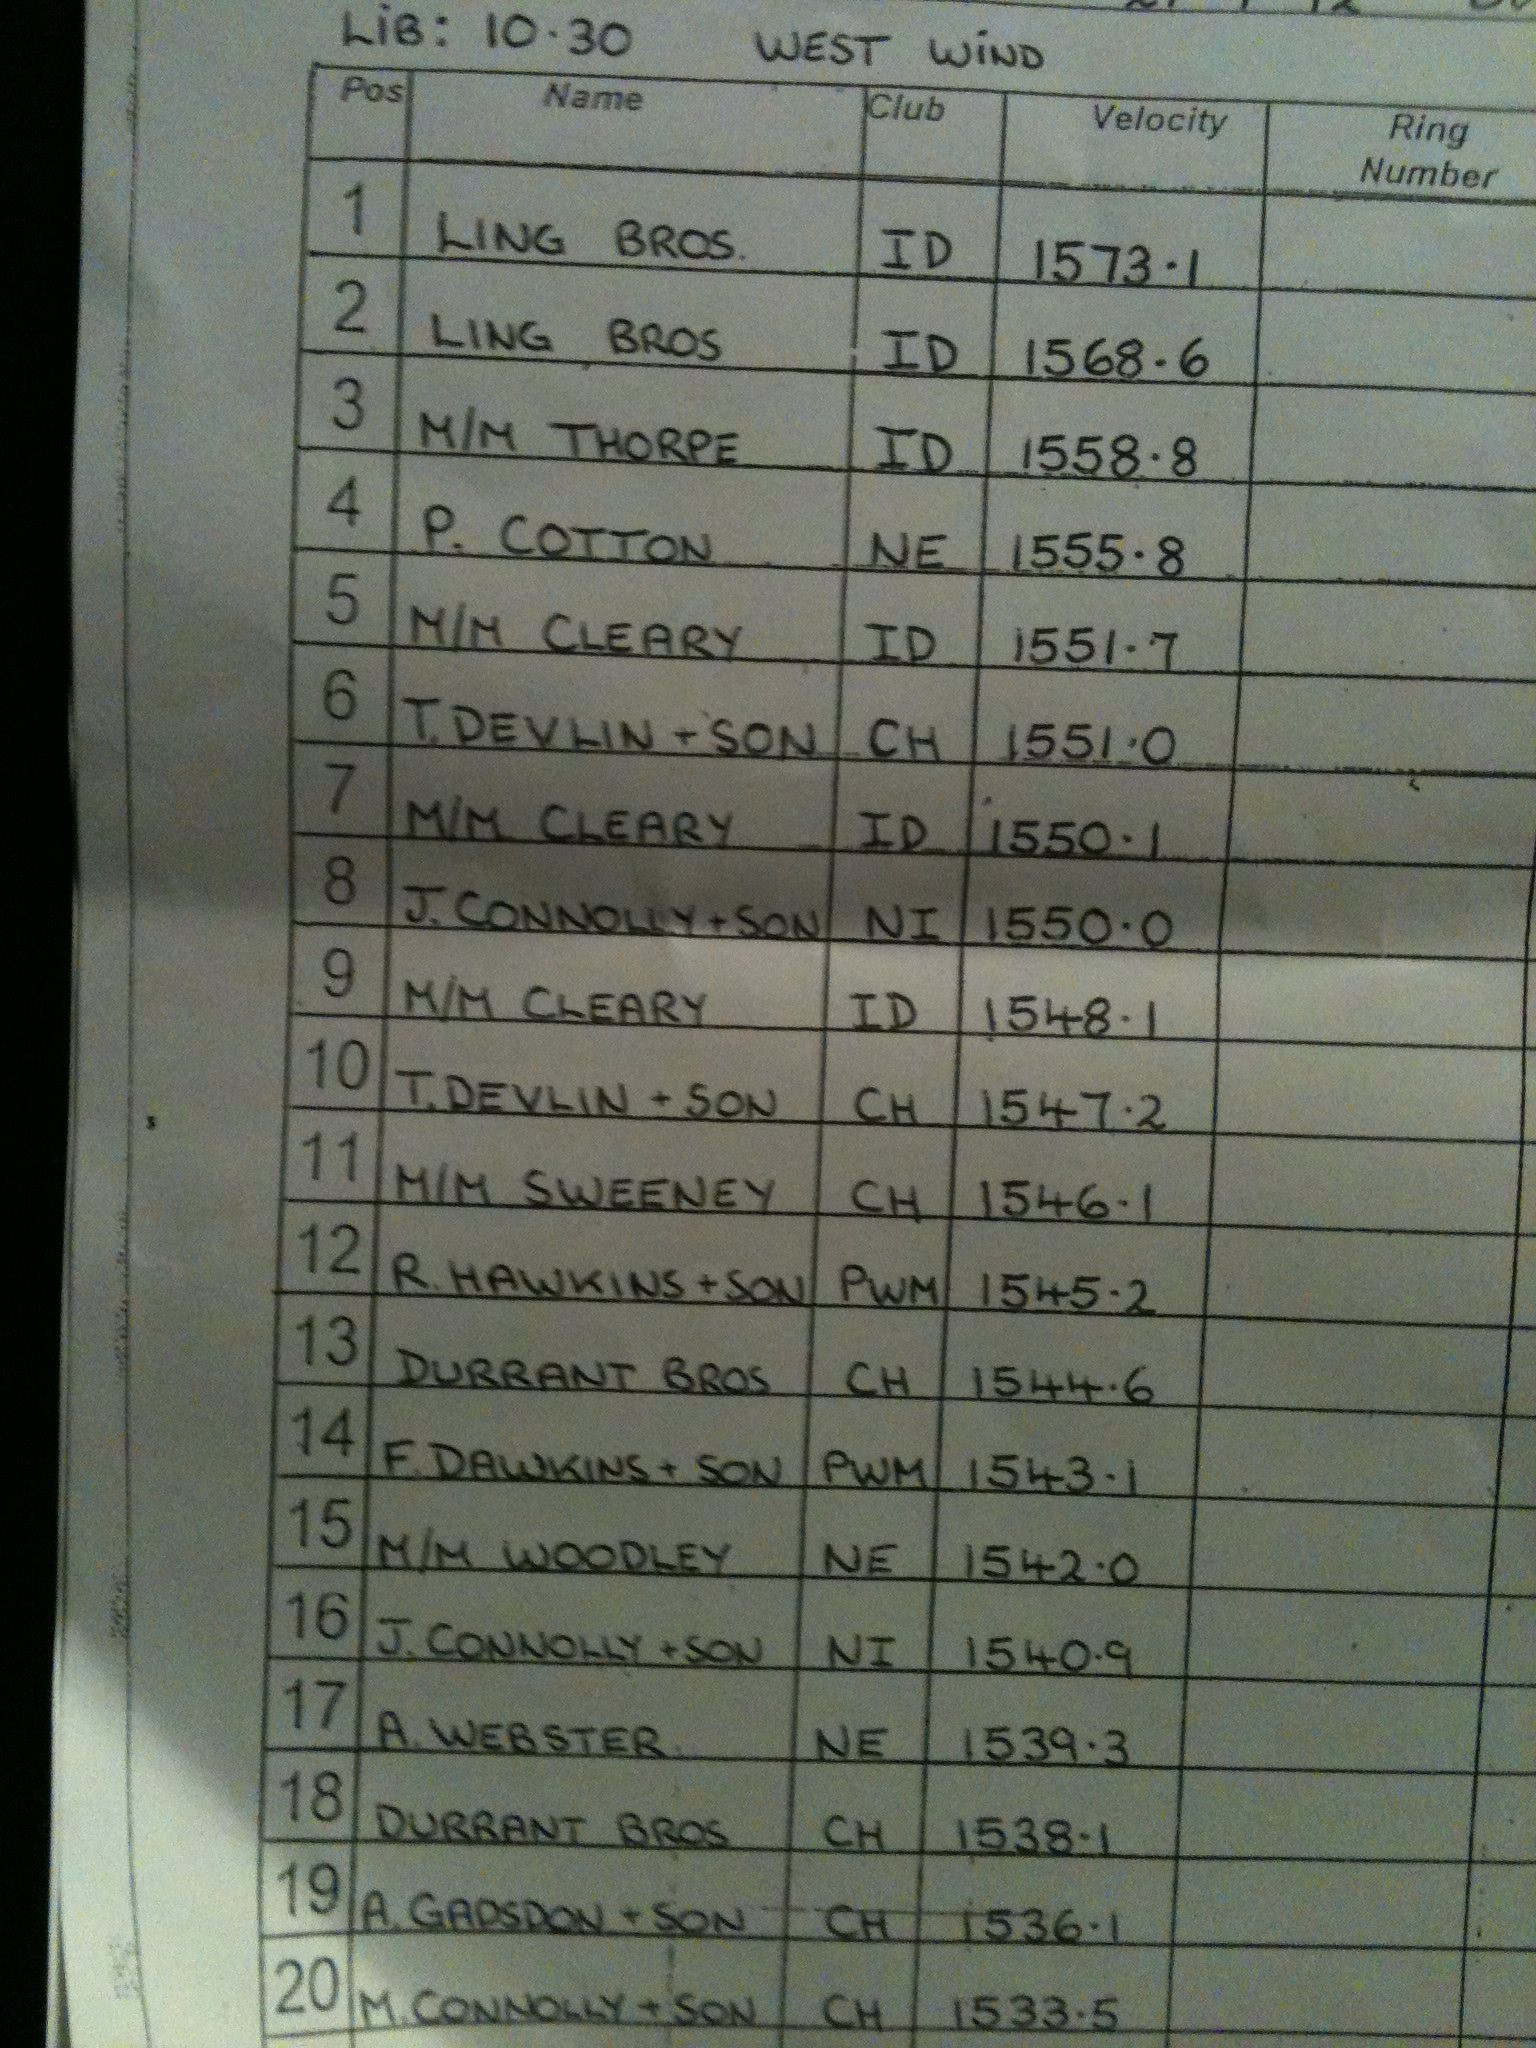 LIB: 10.30 WEST WIND
Pos Name Club Velocity Ring Number
1 LING BROS. ID 1573.1
2 LING BROS ID 1568.6
3 M/M THORPE ID 1558.8
4 P. COTTON NE 1555.8
5 M/M CLEARY ID 1551.7
6 T. DEVLIN + SON CH 1551.0
7 M/M CLEARY ID 1550.1
8 J. CONNOLLY + SON NI 1550.0
9 M/M CLEARY ID 1548.1
10 T. DEVLIN + SON CH 1547.2
11 M/M SWEENEY CH 1546.1
12 R. HAWKINS + SON PWM 1545.2
13 DURRANT BROS CH 1544.6
14 F. DAWKINS + SON PWM 1543.1
15 M/M WOODLEY NE 1542.0
16 J. CONNOLLY + SON NI 1540.9
17 A. WEBSTER NE 1539.3
18 DURRANT BROS CH 1538.1
19 A. GADSDON + SON CH 1536.1
20 M. CONNOLLY + SON CH 1533.5